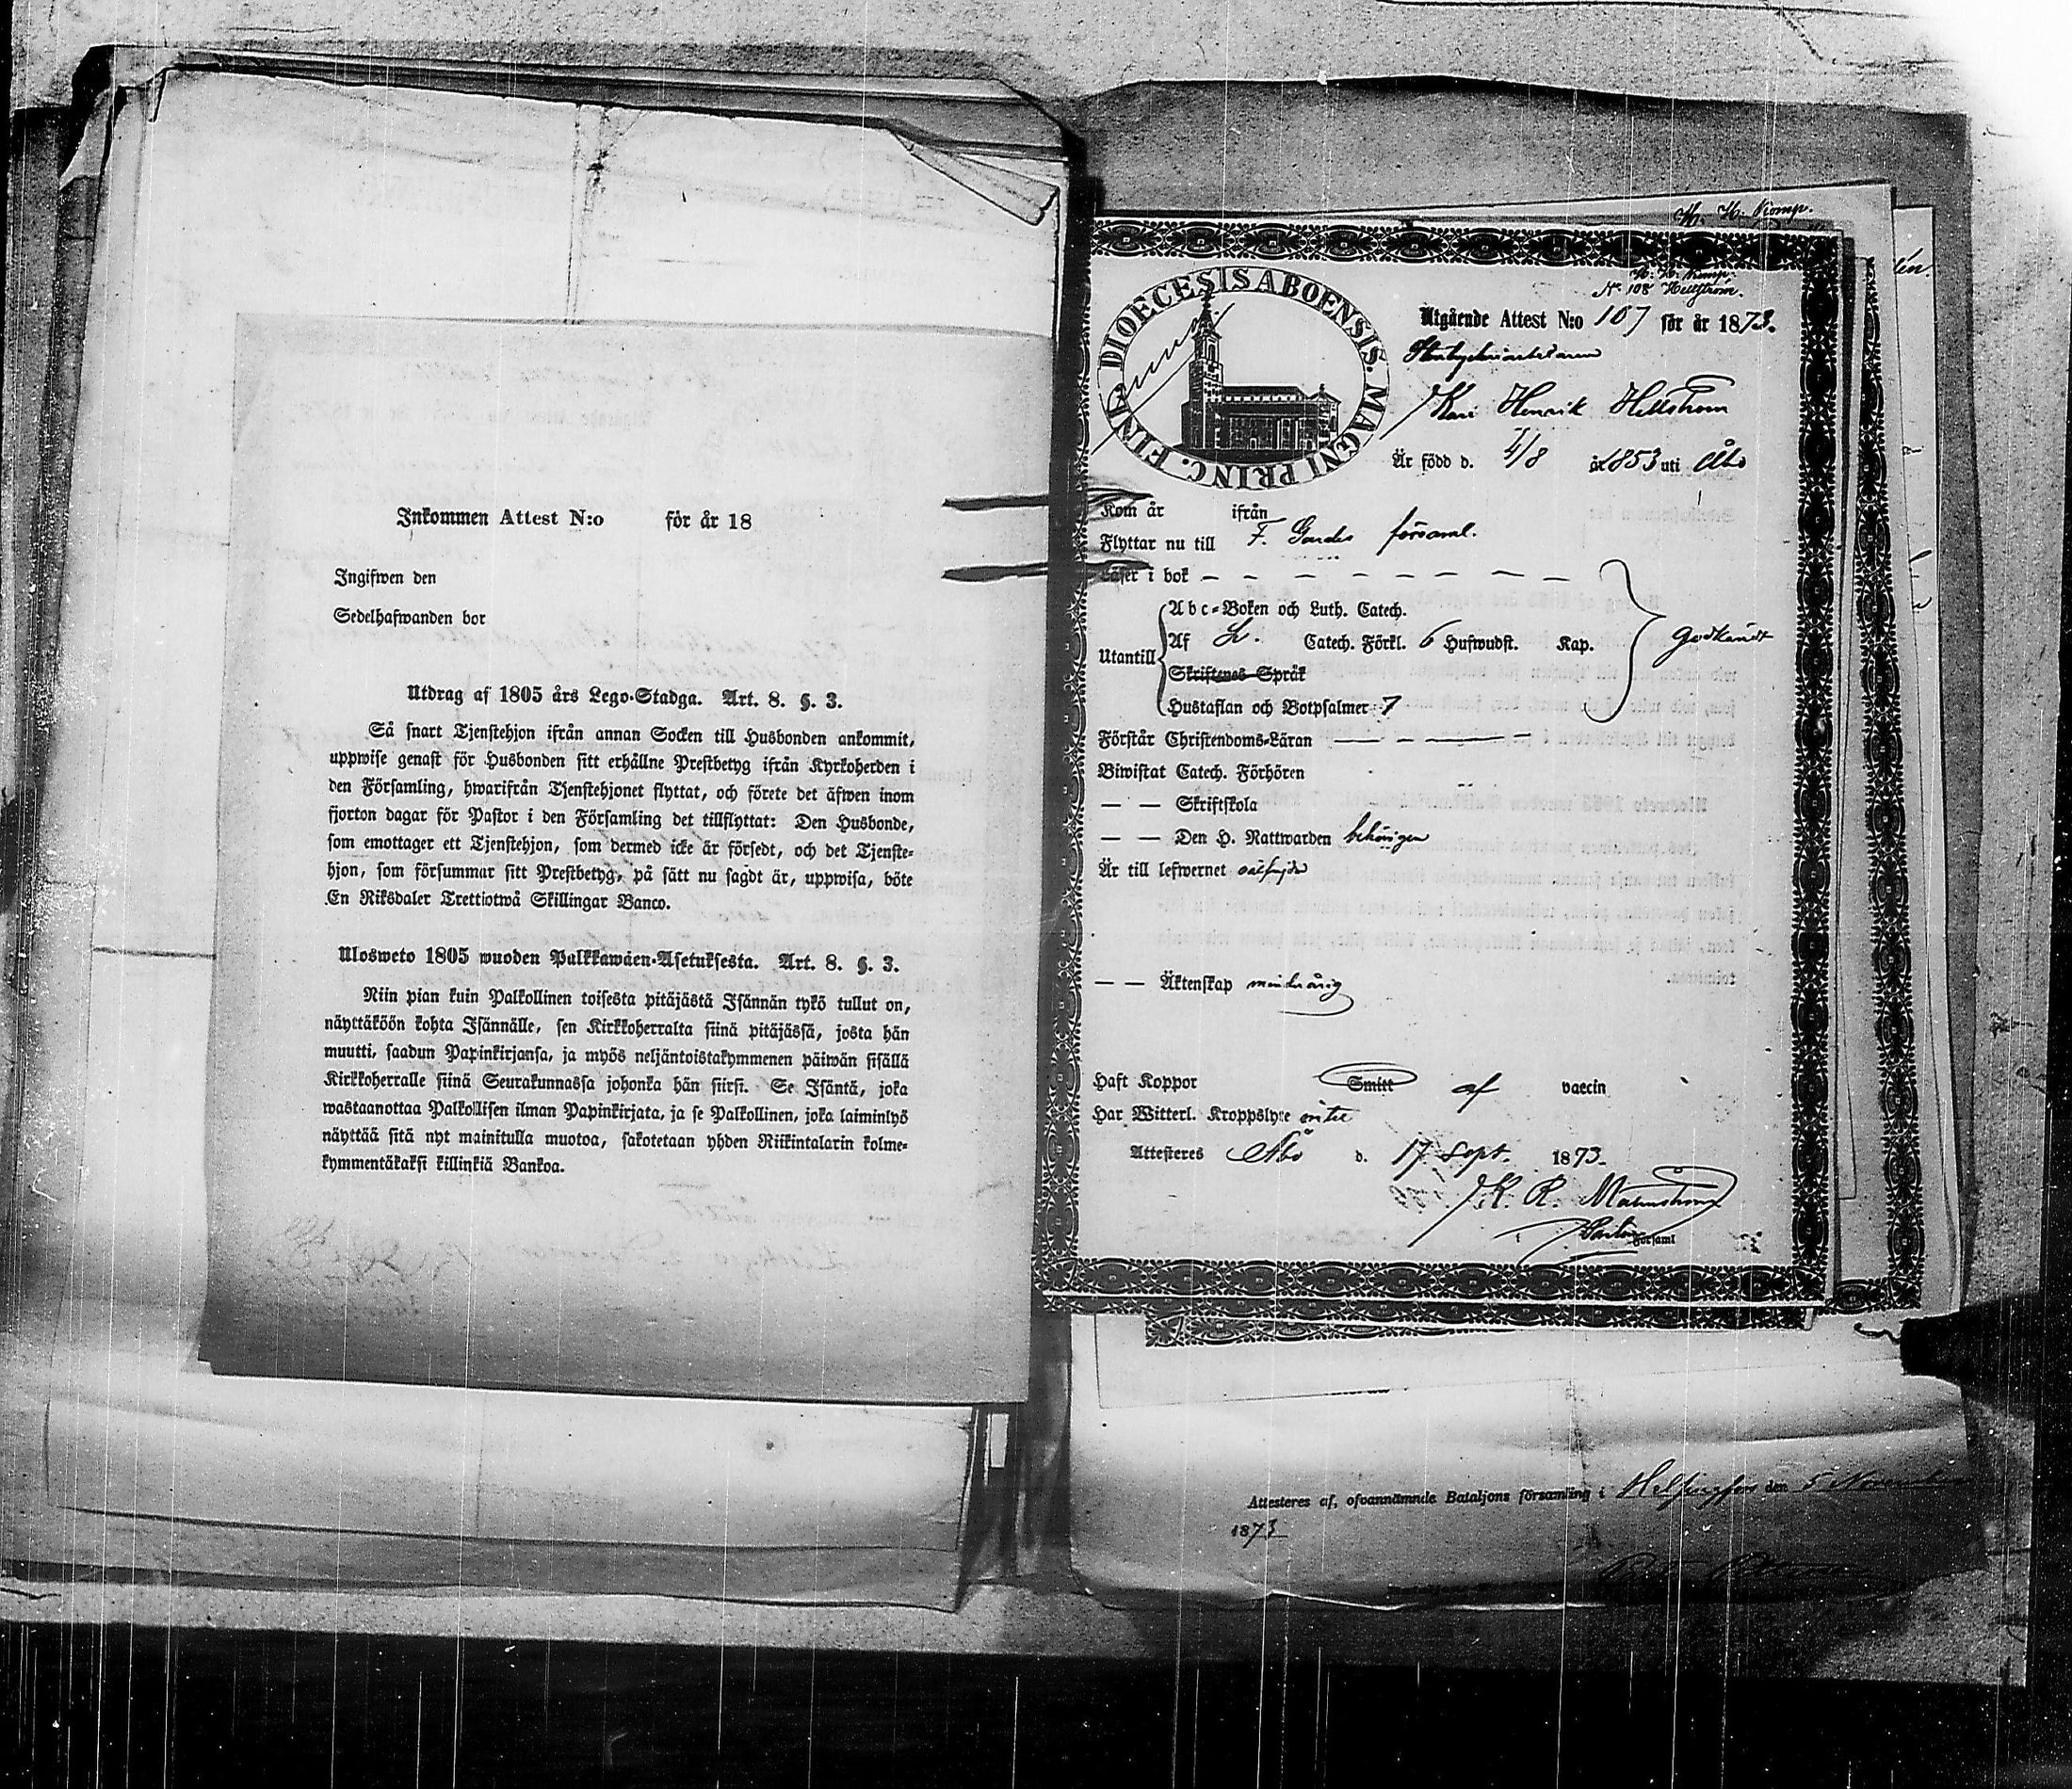 Inkommen Attest N:o för år 18
Ingifwen den
Sedelhafwanden bor
Utdrag af 1805 års Lego-Stadga. Art. 8. §. 3.
Så snart Tjenstehjon ifrån annan Socken till Husbonden ankommit,
uppwise genast för Husbonden sitt erhållne Prestbetyg ifrån Kyrkoherden i
den Församling, hwarifrån Tjenstehjonet flyttat, och förete det äfwen inom
fjorton dagar för Pastor i den Församling det tillflyttat: Den Husbonde,
som emottager ett Tjenstehjon, som dermed icke är försedt, och det Tjenste-
hjon, som försummar sitt Prestbetyg, på sätt nu sagdt är, uppwisa, böte
En Riksdaler Trettiotwå Skillingar Banco.
Ulosweto 1805 wuoden Palkkawäen-Asetuksesta. Art. 8. §. 3.
Niin pian kuin Palkollinen toisesta pitäjästä Isännän tykö tullut on,
näyttäköön kohta Isännälle, sen Kirkkoherralta siinä pitäjässä, josta hän
muutti, saadun Papinkirjansa, ja myös neljäntoistakymmenen päiwän sisällä
Kirkkoherralle siinä Seurakunnassa johonka hän siirsi. Se Isäntä, joka
wastaanottaa Palkollisen ilman Papinkirjata, ja se Palkollinen, joka laiminlyö
näyttää sitä nyt mainitulla muotoa, sakotetaan yhden Riikintalarin kolme-
kymmentäkaksi killinkiä Bankoa.
DIOECESIS ABOENSIS. MAGNI PRINC. FINL.
N:o 108 Hellström.
Utgående Attest N:o 107 för år 1873.
Karl Henrik Hellstrom
Är född d. 4/8 år 1853 uti Åbo
Kom år ifrån
Flyttar nu till F. Gardes församl.
Läser i bok — — — — — — — —
Abc-Boken och Luth. Catech.
Utantill Af Catech. Förkl. 6 Hufwudst. Kap. godkändt
Skriftenes Språk
Hustaflan och Botpsalmer 7
Förstår Christendoms-Läran — — — —
Biwistat Catech. Förhören
— — Skriftskola
— — Den H. Nattwarden behörigen
Är till lefwernet välfrejd
— — Äktenskap minderårig
Haft Koppor Smitt af vaccin
Har Witterl. Kroppslyte intet
Attesteres Åbo d. 17 Sept. 1873.
K. R. Malmstrom
Församl
Attesteres af, ofvannämnde Bataljons församling i Helsingfors den 5 November
1873